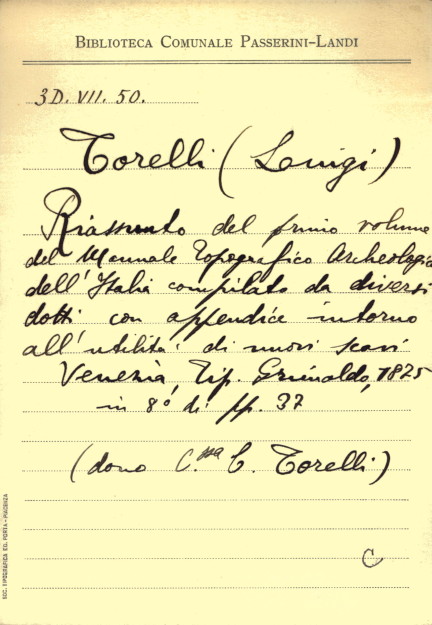 BIBLIOTECA COMUNALE PASSERINI-LANDI
3D. VII. 50.
Torelli (Luigi)
Riassunto del primo volume
del Manuale Topografico Archeologico
dell'Italia compilato da diversi
dotti con appendice intorno
all'utilità di nuovi scavi
Venezia, Tip. Grimaldo, 1875
in 8º di pp. 37
(dono C.ssa C. Torelli)
C
SOC. TIPOGRAFICA ED. PORTA - PIACENZA